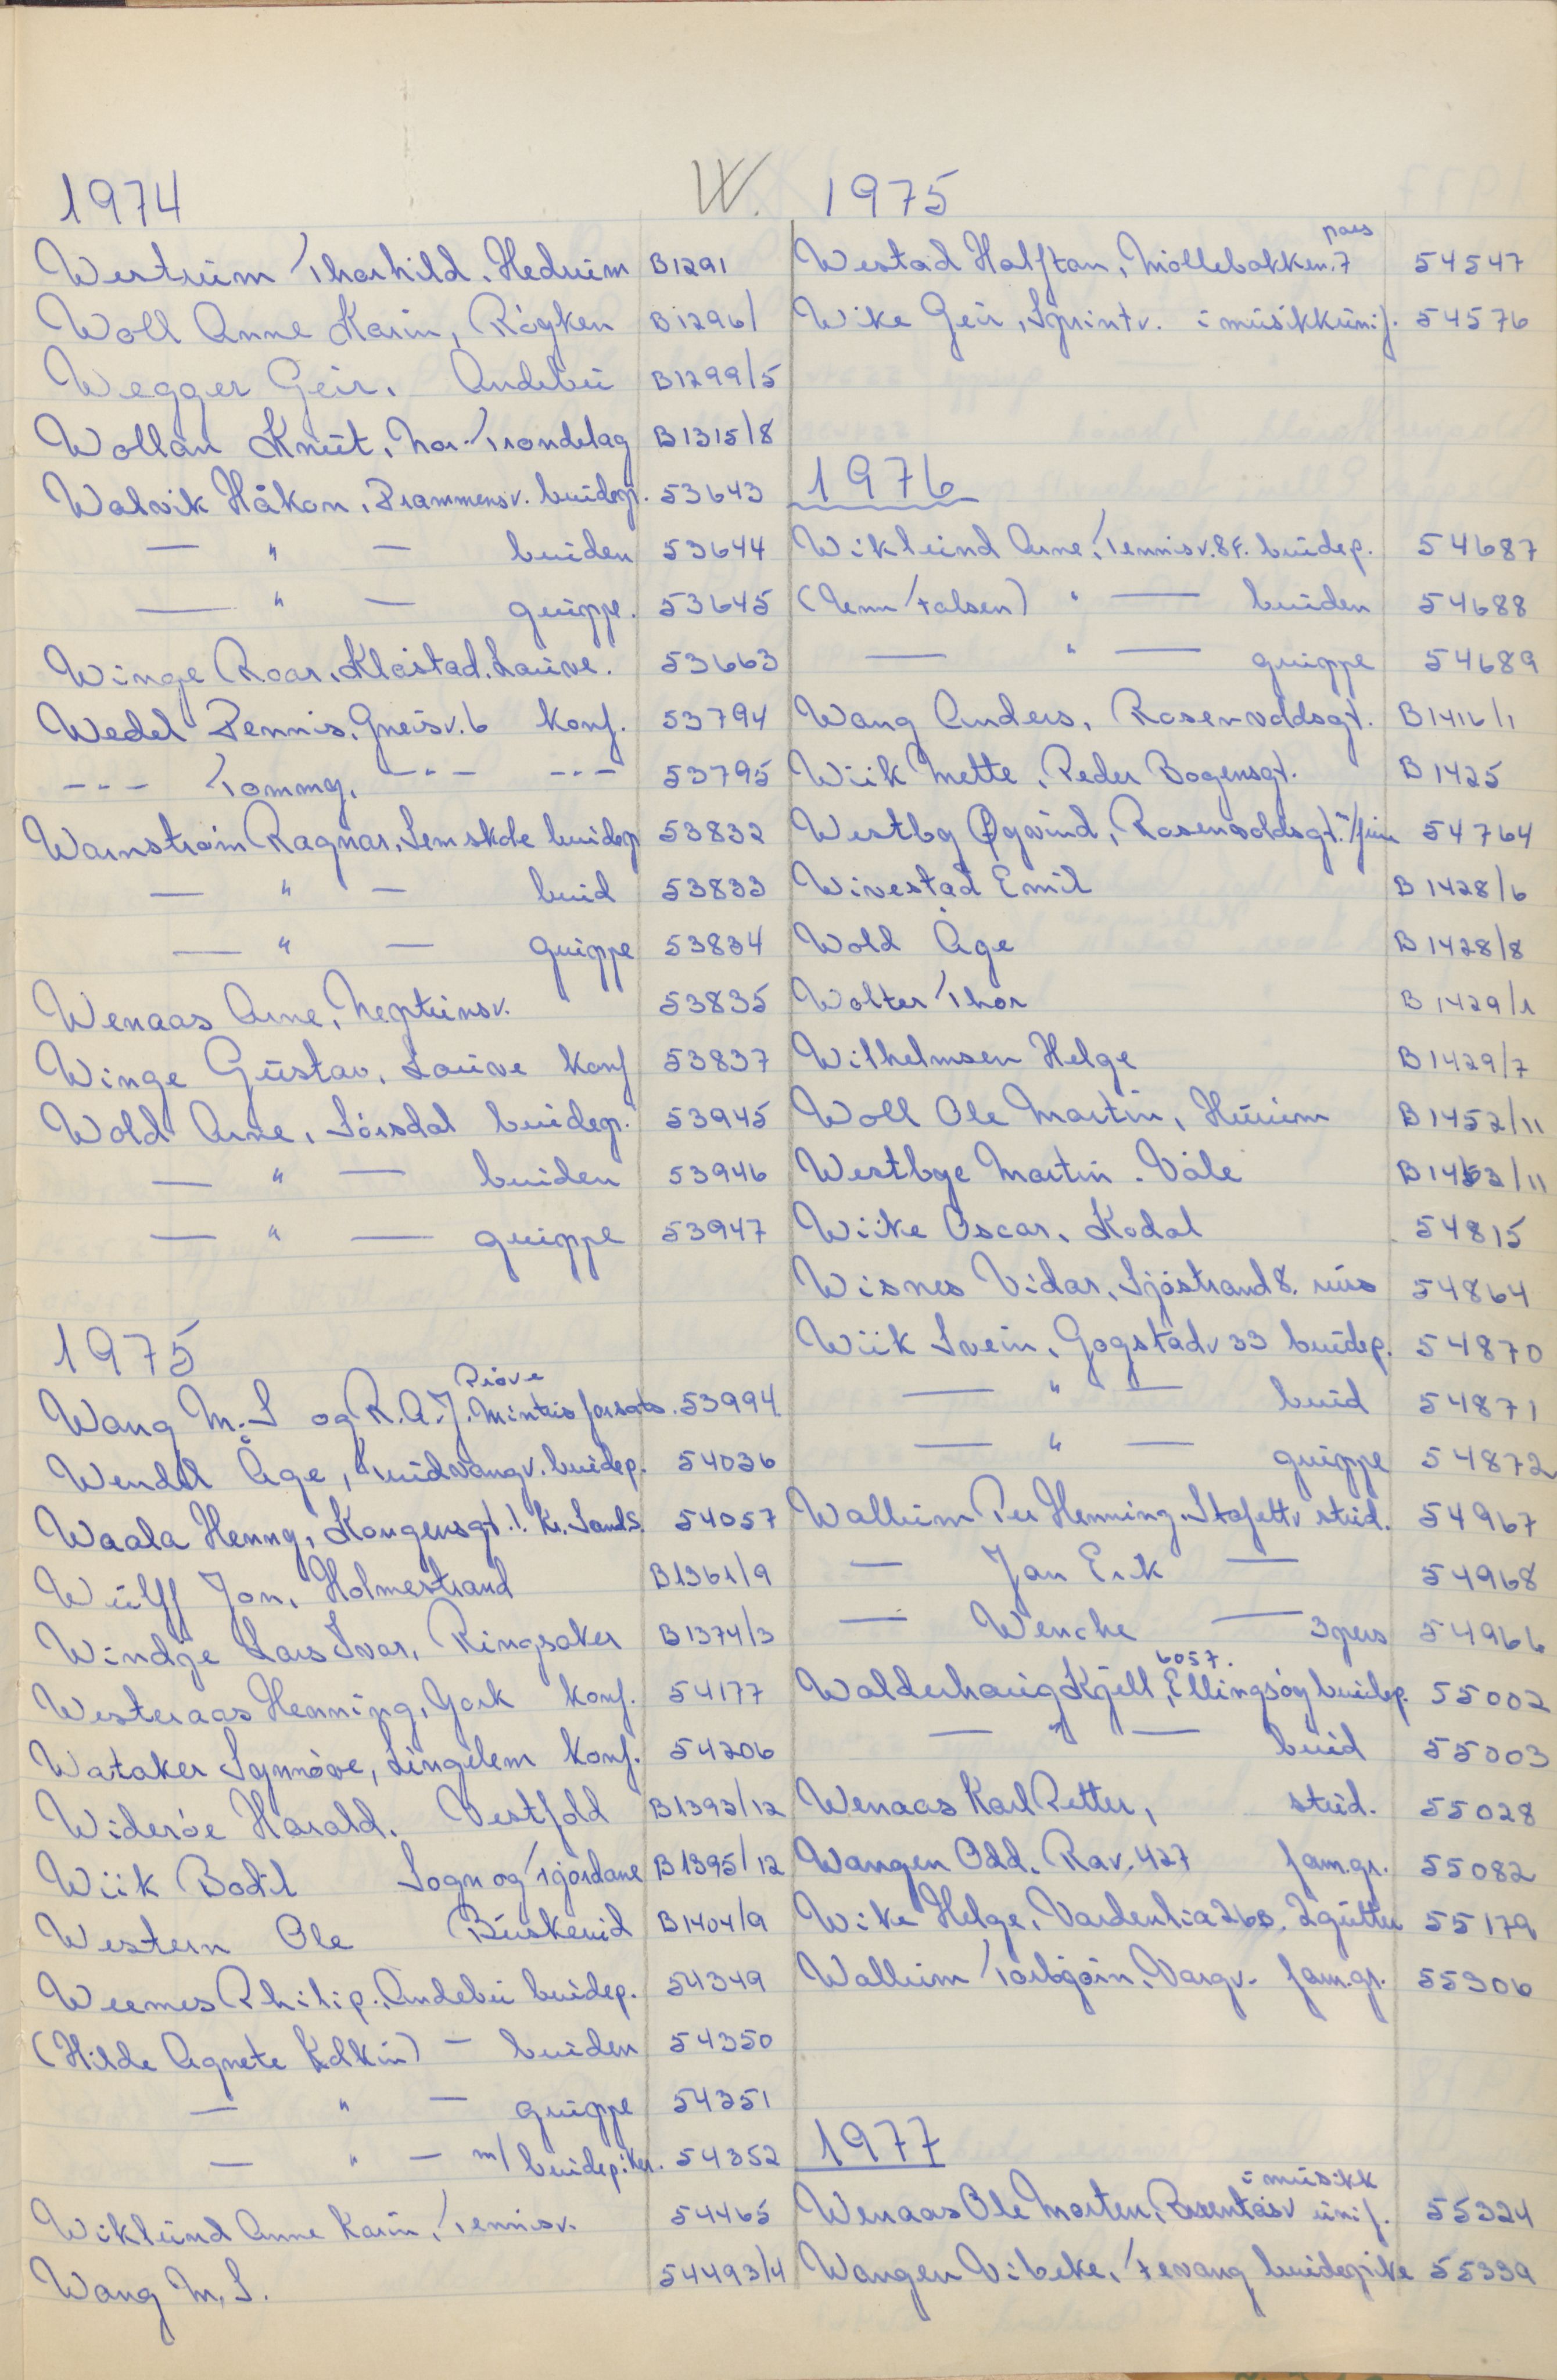 W.
1974
Westrum Thorhild. Hedrum B1291
Woll Anne Karin, Röyken B1296/
Wegger Geir. Andebu B1299/5
Wollan Knut. Nor-Trøndelag B1315/8
Walvik Håkon. Prammensv. brudep. 53643
— " — bruden 53644
— " — gruppe. 53645
Winge Roar. Klåstad. Lauve. 53663
Wedel Dennis. Gneisv. 6 konf. 53794
--- Tommy. -"- --- 53795
Warnström Ragnar. Lemskole brudep 53832
— " — brud 53833
— " — gruppe 53834
Wenaas Arne, Neptunsv. 53835
Winge Gustav. Lauve konf 53837
Wold Arne, Lörsdal brudep. 53945
— " — bruden 53946
— " — gruppe 53947
1975
Wang M.L og R.A.J. Mintris forsats. Pröve 53994
Wendel Åge, Trudvangv. brudep. 54036
Waala Henny, Kongensgt. 1. Kr. Sands. 54057
Wulff Jon. Holmestrand B1361/9
Windju Lars Ivar, Ringsaker B1374/3
Westeraas Henning, York konf. 54177
Wataker Synnöve, Lingelem konf. 54206
Wideröe Harald. Vestfold B1393/12
Wiik Bodil Sogn og Fjordane B1395/12
Western Ole Buskerud B1404/9
Weemes Philip. Andebu brudep. 54349
(Hilde Agnete Kdkin) — bruden 54350
— " — gruppe 54351
— " — m/ brudepiker. 54352
Wiklund Anne Karin, Tennisv. 54465
Wang M. L. 54493/4
1975
Westad Halftan, Möllebakken. 7 pass 54547
Wike Geir, Sprintv. i musikkunif. 54576
1976
Wiklund Arne, Tennisv. 8 F. brudep. 54687
(Unn Falsen) " — bruden 54688
— " — gruppe 54689
Wang Anders, Rosenvoldsgt. B1416/1
Wiik Mette, Peder Bogensgt. B1425
Westby Øyvind, Rosenvoldsgt. 54764
Wivestad Emil B1428/6
Wold Åge B1428/8
Wolter Thor B1429/1
Wilhelmsen Helge B1429/7
Woll Ole Martin, Hurum B1452/11
Westbye Martin. Våle B1453/11
Wiike Oscar, Kodal 54815
Wisnes Vidar, Sjöstrand 8. rus 54864
Wiik Svein, Gogstadv 33 brudep. 54870
— " — brud 54871
— " — gruppe 54872
Wallum Per Henning. Stafettv stud. 54967
— Jan Erik — 54968
— Wenche — 3 pers 54966
Walderhaug Kjell, 6057. Ellingsöy brudep. 55002
— " — brud 55003
Wenaas Karl Petter, stud. 55028
Wangen Odd. Rav. 427 fam.gr. 55082
Wike Helge, Vardenlia 26B. 2 gutter 55179
Wallum Torbjörn, Vargv. fam.gr. 55306
1977
Wenaas Ole Morten, Rosentåsv i musikk unif. 55324
Wangen Vibeke, Fevang brudepike 55339